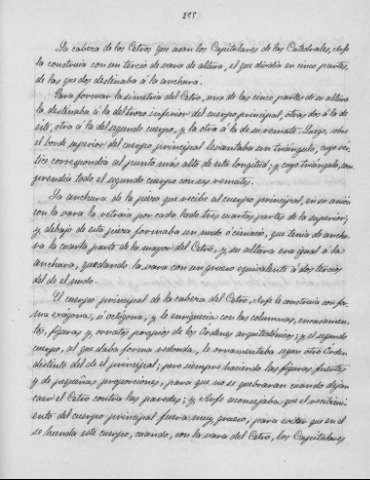 215
La cabeza de los Cetros que usan los Capitulares de las Catedrales, Arfe
la construía con un tercio de vara de altura, el que dividía en cinco partes,
de las que dos destinaba á la anchura.
Para formar la simetría del Cetro, una de las cinco partes de su altura
la destinaba á la del trozo inferior del cuerpo principal, otras dos á la de
éste, otra á la del segundo cuerpo, y la otra á la de su remate: Luego, sobre
el borde inferior del cuerpo principal levantaba un triángulo, cuyo vér-
tice correspondía al punto más alto de esta longitud; y cuyo triángulo, com-
prendía todo el segundo cuerpo con sus remates.
La anchura de la pieza que recibe al cuerpo principal, en su unión
con la vara la retiraba por cada lado tres cuartas partes de la superior;
y debajo de esta pieza formaba un nudo ó cimacio, que tenía de ancho
la cuarta parte de la mayor del Cetro, y su altura era igual á la
anchura, quedando la vara con un grueso equivalente á dos tercios
del de el nudo.
El cuerpo principal de la cabeza del Cetro, Arfe le construía con for-
ma exágona, ú octógona, y le enriquecía con las columnas, encasamen-
tos, figuras y ornatos propios de los Ordenes arquitectónicos; y el segundo
cuerpo, al que daba forma redonda, le ornamentaba según otro Orden
distinto del de el principal; pero siempre haciendo las figuras fuertes
y de pequeñas proporciones, para que no se quebraran cuando dejan
caer el Cetro contra las paredes; y Arfe aconsejaba, que el recibimi-
ento del cuerpo principal fuera muy grueso, para evitar que en él
se hunda este cuerpo, cuando, con la vara del Cetro, los Capitulares